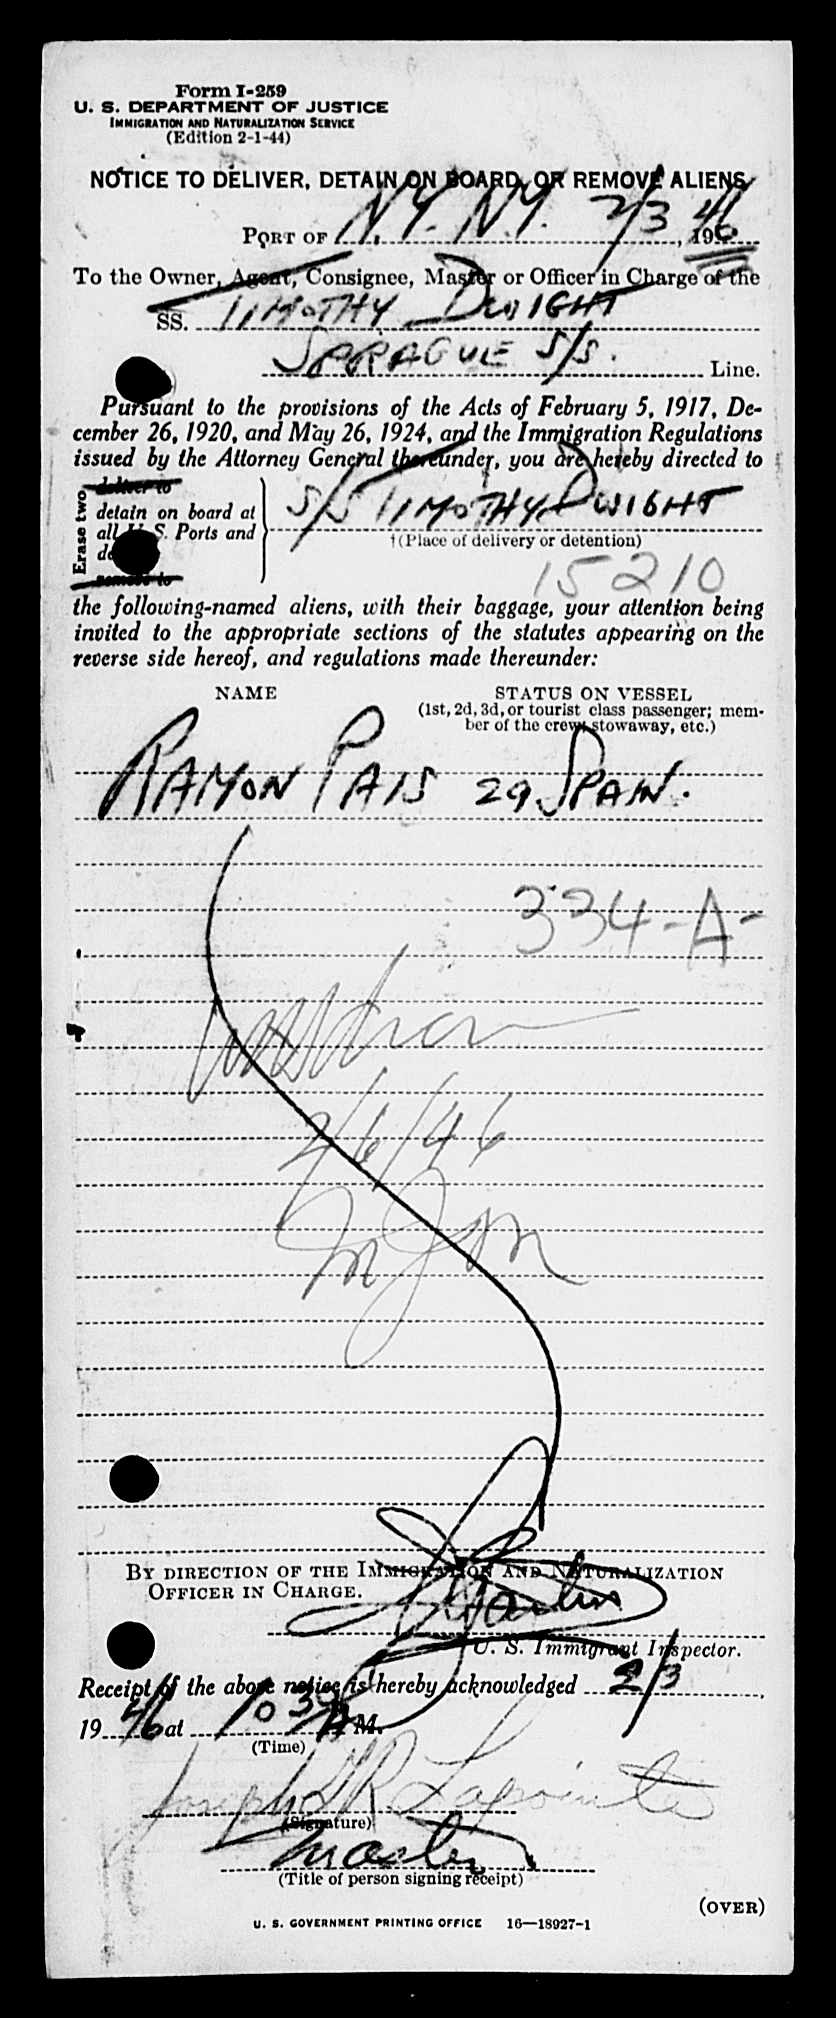 Form I-259
U. S. DEPARTMENT OF JUSTICE
IMMIGRATION AND NATURALIZATION SERVICE
(Edition 2-1-44)
NOTICE TO DELIVER, DETAIN ON BOARD, OR REMOVE ALIENS
PORT OF N.Y. N.Y. 2/3, 1946
To the Owner, Agent, Consignee, Master or Officer in Charge of the
SS. TIMOTHY DWIGHT
SPRAGUE S/S. Line.
Pursuant to the provisions of the Acts of February 5, 1917, De-
cember 26, 1920, and May 26, 1924, and the Immigration Regulations
issued by the Attorney General thereunder, you are hereby directed to
Erase two
deliver to
detain on board at
all U. S. Ports and
remove to
S/S TIMOTHY DWIGHT
†(Place of delivery or detention)
15210
the following-named aliens, with their baggage, your attention being
invited to the appropriate sections of the statutes appearing on the
reverse side hereof, and regulations made thereunder:
NAME STATUS ON VESSEL
(1st, 2d, 3d, or tourist class passenger; mem-
ber of the crew, stowaway, etc.)
RAMON PAIS 29 SPAIN.
334-A-
2/6/46
BY DIRECTION OF THE IMMIGRATION AND NATURALIZATION
OFFICER IN CHARGE.
U. S. Immigrant Inspector.
Receipt of the above notice is hereby acknowledged 2/3,
1946 at 10 30 A M.
(Time)
Joseph R Lapointe
(Signature)
Master
(Title of person signing receipt)
(OVER)
U. S. GOVERNMENT PRINTING OFFICE 16—18927-1